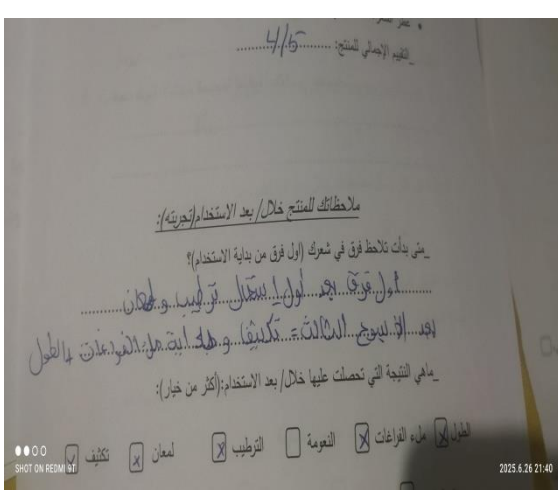 عمر
_التقييم الإجمالي للمنتج: ........4/5........
ملاحظاتك للمنتج خلال/ بعد الاستخدام(تجربته):
_متى بدأت تلاحظ فرق في شعرك (اول فرق من بداية الاستخدام)؟
أول فرق بعد أول إستعمال ترطيب و لمعان
بعد الأسبوع الثالث = تكثيف و بداية ملئ الفراغات + الطول
_ماهي النتيجة التي تحصلت عليها خلال/ بعد الاستخدام:(أكثر من خيار):
الطول ملء الفراغات النعومة الترطيب لمعان تكثيف
SHOT ON REDMI 9T
2025.6.26 21:40